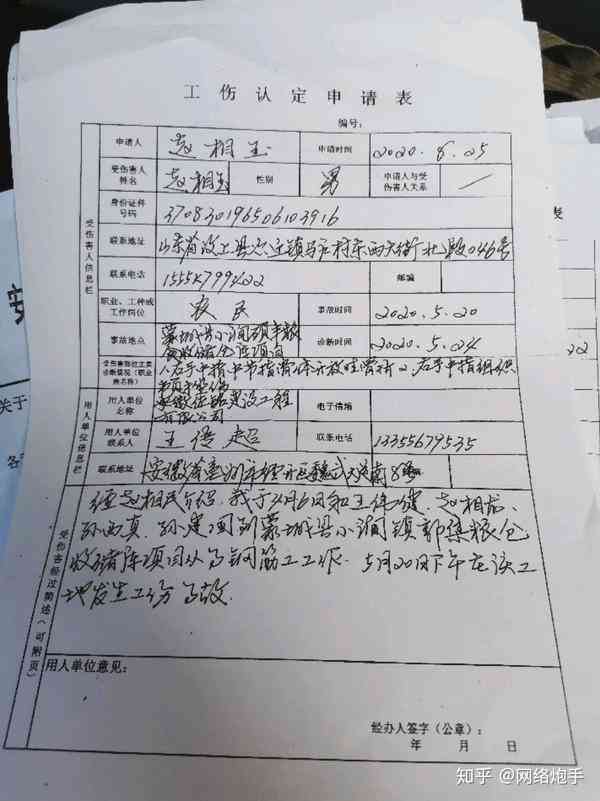 工伤认定申请表
编号：
申请人 赵相玉 申请时间 2020.8.25
受伤害人姓名 赵相玉 性别 男 申请人与受伤害人关系 —
身份证件号码 370830196506103916
联系地址 山东省汶上县 镇 村东西大街北 046号
联系电话 15554799422 邮编
职业、工种或工作岗位 农民 事故时间 2020.5.20
事故地点 蒙城县小涧镇 收储仓库项目 诊断时间 2020.5.24
受伤害部位主要诊断情况（职业病名称） 1右手中指中节指骨 开放性骨折 2、右手中指组织
用人单位名称 安徽 建设工程有限公司 电子信箱
用人单位联系人 王 超 联系电话 13355679535
联系地址 安徽省 南8
受伤害人信息栏
用人单位信息栏
受伤害经过简述（可附页）
经赵相民介绍，我于4月6日和王伟健、赵相龙、
孙西真、孙建国到蒙城县小涧镇郭集粮仓
收储库项目从事钢筋工工作，5月20日下午在该工
地发生工伤事故.
用人单位意见：
经办人签字（公章）：
年 月 日
表
22
关于
各
知乎 @网络炮手